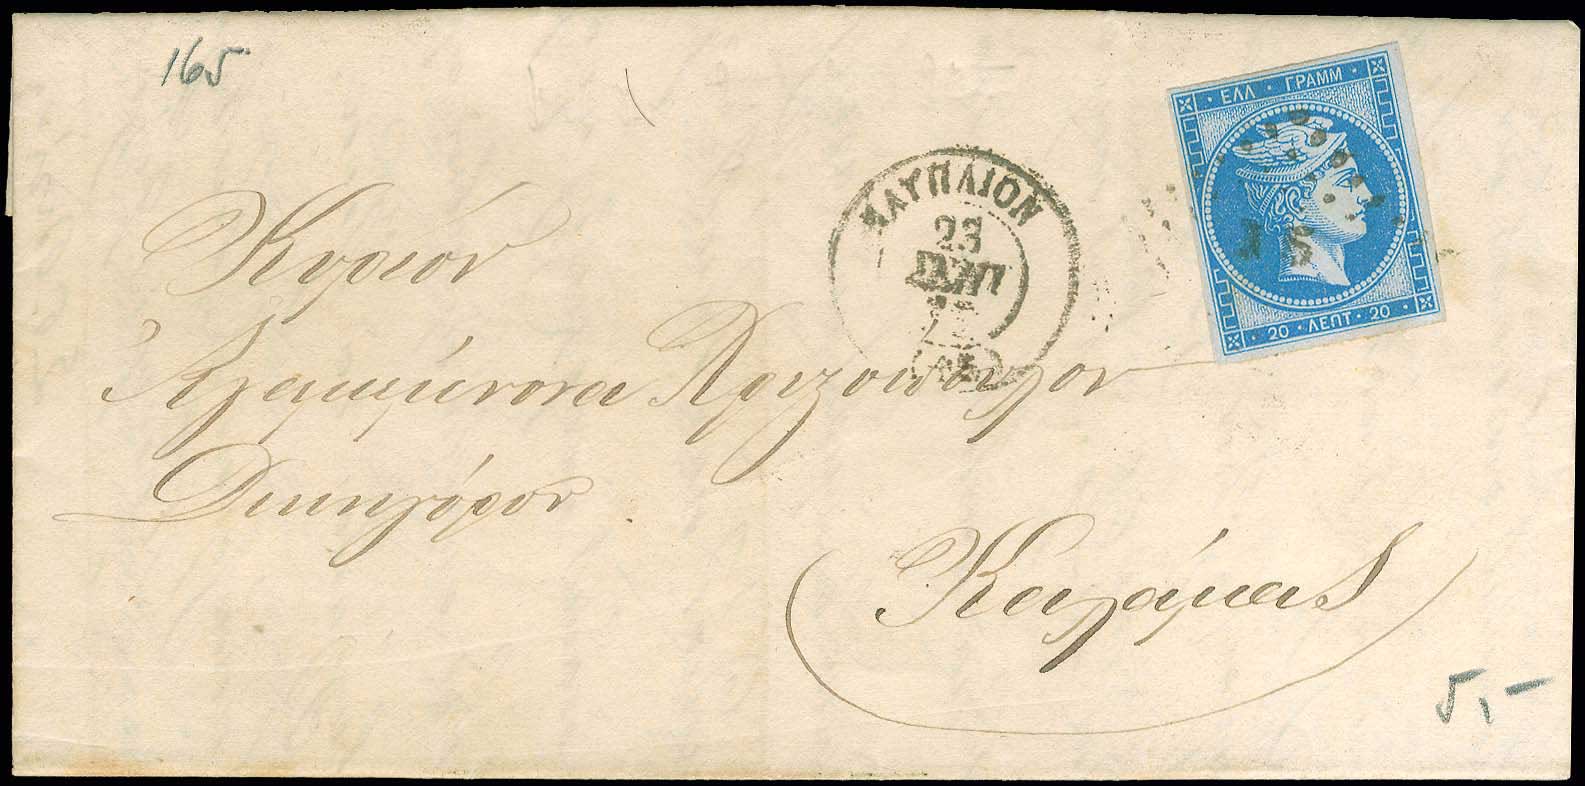 165
ΕΛΛ · ΓΡΑΜΜ
20 · ΛΕΠΤ · 20
ΝΑΥΠΛΙΟΝ
23
ΣΕΠΤ
Κυριον
Ἀγαμέμνονα Χρυσόπουλον
Δικηγόρον
Καλάμας
5,-